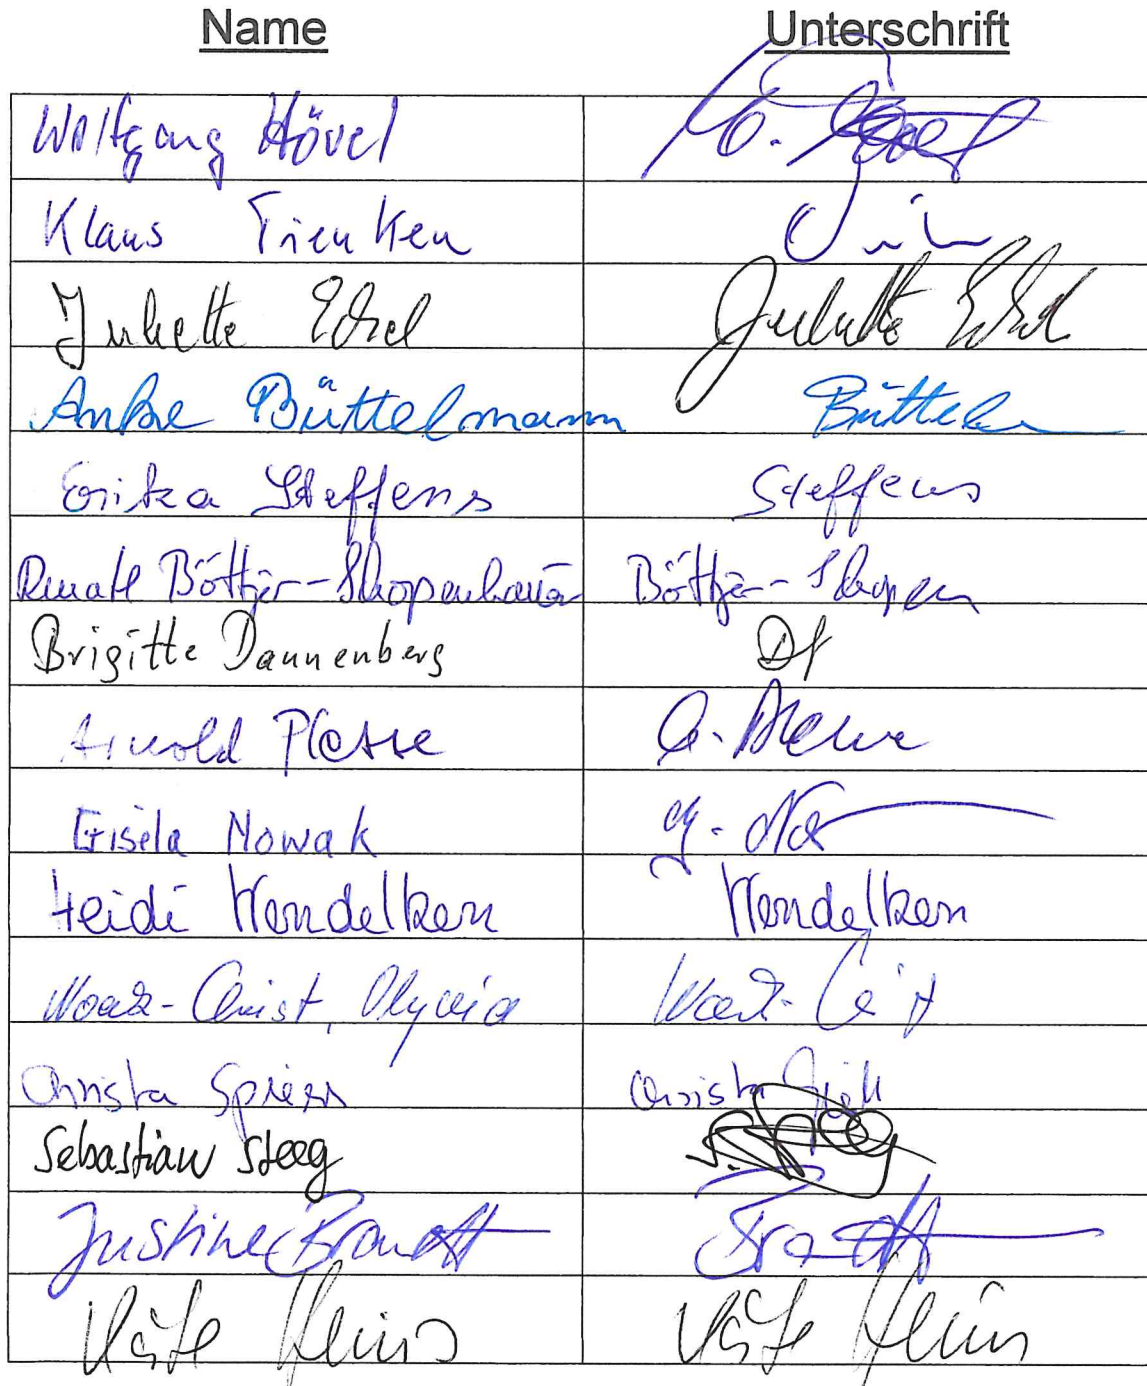 Name Unterschrift
Wolfgang Hövel W. Hövel
Klaus Trenken
Juliette Edzel Juliette
Anke Büttelmann Büttel
Erika Steffens Steffens
Renate Böttjer-Schopenhauer Böttjer-Schopen
Brigitte Dannenberg
Arnold Plesse A. Plesse
Gisela Nowak G. No
Heidi Wendelken Wendelken
Noack-Christ, Olympia
Christa Spiess Christa
Sebastian Steeg S. Steeg
Justine Brandt Brandt
Käte Heins Käte Heins